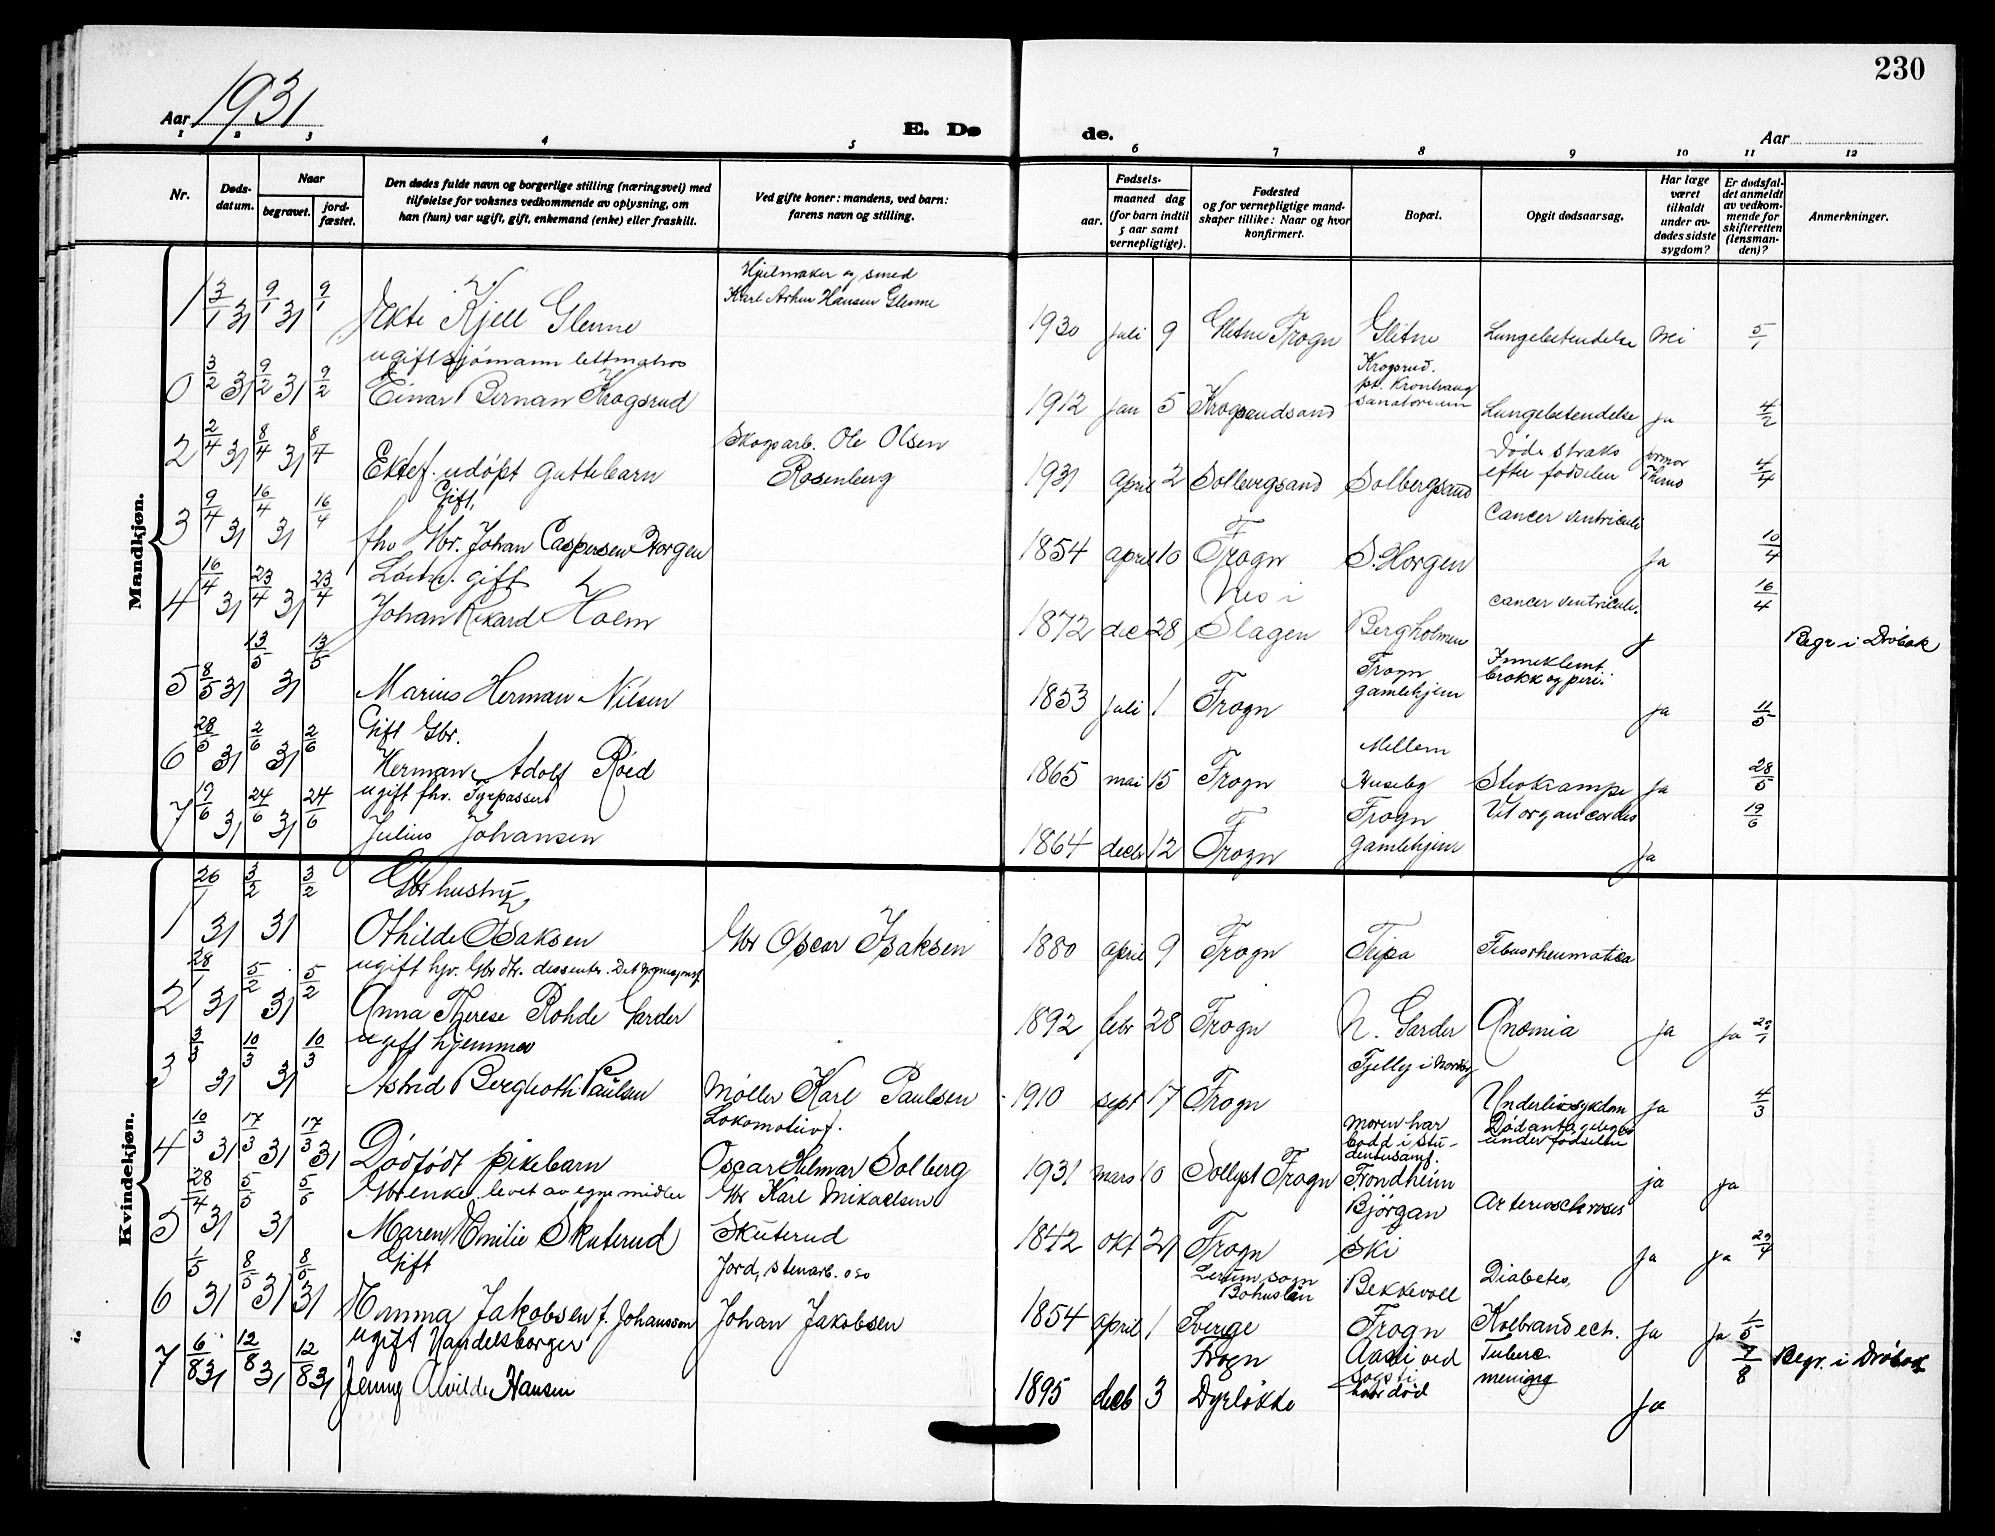 230
Aar 1931
E. Dø
de.
Aar
1 2 3 4 5 6 7 8 9 10 11 12
Nr.
Døds-
datum.
Naar
begravet.
jord-
fæstet.
Den dødes fulde navn og borgerlige stilling (næringsvei) med
tilføielse for voksnes vedkommende av oplysning, om
han (hun) var ugift, gift, enkemand (enke) eller fraskilt.
Ved gifte koner: mandens, ved barn:
farens navn og stilling.
Fødsels-
aar.
maaned dag
(for barn indtil
5 aar samt
vernepligtige).
Fødested
og for vernepligtige mand-
skaper tillike: Naar og hvor
konfirmert.
Bopæl.
Opgit dødsaarsag.
Har læge
været
tilkaldt
under av-
dødes sidste
sygdom?
Er dødsfal-
det anmeldt
av vedkom-
mende for
skifteretten
(lensman-
den)?
Anmerkninger.
Mandkjøn.
Hjulmaker og smed
Karl Arthur Hansen Glenne
1 3/1 31 9/1 31 9/1 Ekte Kjell Glenne 1930 juli 9 Glitne Frogn Glitne Lungebetendelse nei 5/1
ugift sjømann lettmatros
Krogsrud.
pt. Kronhaug
sanatorium
0 3/2 31 9/2 31 9/2 Einar Bernan Krogsrud 1912 jan 5 Krogsrudsand Lungebetendelse ja 4/2
Skogsarb. Ole Olsen
Døde straks
2 2/4 31 8/4 31 8/4 Ektef. udøpt guttebarn Rosenberg 1931 april 2 Solbergsand Solbergsand efter fødselen 4/4
Gift,
Cancer ventriculi
3 9/4 31 16/4 31 16/4 fhv Gbr. Johan Caspersen Horgen 1854 april 10 Frogn S. Horgen ja 10/4
gift
Nes i
cancer ventriculi.
4 16/4 31 23/4 31 23/4 Johan Rikard Holm 1872 dec 28 Slagen Bergholmen 16/4 Begr i Drøbak
Frogn
Inneklemt
5 8/5 31 13/5 31 13/5 Marius Herman Nilsen 1853 juli 1 Frogn gamlehjem brokk og peri. ja 11/5
Gift Gbr.
Mellem
6 28/5 31 2/6 31 2/6 Herman Adolf Røed 1865 mai 15 Frogn Huseby ja 28/5
ugift fhv. Fyrpasser
Frogn
Vit organ cordis
7 31 24/6 31 24/6 Julius Johansen 1864 decbr 12 Frogn gamlehjem ja 19/6
Kvindekjøn.
Gbr hustru
1 26/1 31 3/2 31 3/2 Othilde Isaksen Gbr Oscar Isaksen 1880 april 9 Frogn Tipa
ugift hjv. Gbr dtr. dissenter.
2 28/1 31 5/2 31 5/2 Anna Therese Rohde Garder 1892 febr 28 Frogn N. Garder Anæmia ja ja 29/1
ugift hjemmev
3 3/3 31 10/3 31 10/3 Astrid Berglioth Paulsen Møller Karl Paulsen 1910 sept 17 Frogn Underlivssykdom ja 4/3
Lokomotivf.
Moren har
bodd i Stu-
dentersamf.
Død antagelig
under fødselen
4 10/3 31 17/3 31 17/3 31 Dødfødt pikebarn Oscar Hilmar Solberg 1931 mars 10 Sollyst Frogn Trondheim ja ja
Gbr enke levet av egne midler Gbr Karl Mikaelsen
Bjørgan
5 28/4 31 5/5 31 5/5 Maren Emilie Skuterud Skuterud 1842 okt 21 Frogn Ski ja ja 29/4
Gift
Jord, stenarb. oso
Bohuslän
Bekkevoll
Diabetes,
6 1/5 31 8/5 31 8/5 31 Emma Jakobsen f. Johansson Johan Jakobsen 1854 april 1 Sverige Frogn Kolbrand ja ja 1/5
ugift Handelsborger
Frogn
Aas ved
Tuberc.
7 6/8 31 12/8 31 12/8 31 Jenny Alvilde Hansen 1895 decb 3 Dyrløkke død mening ja 7/8 Begr. i Drøbak